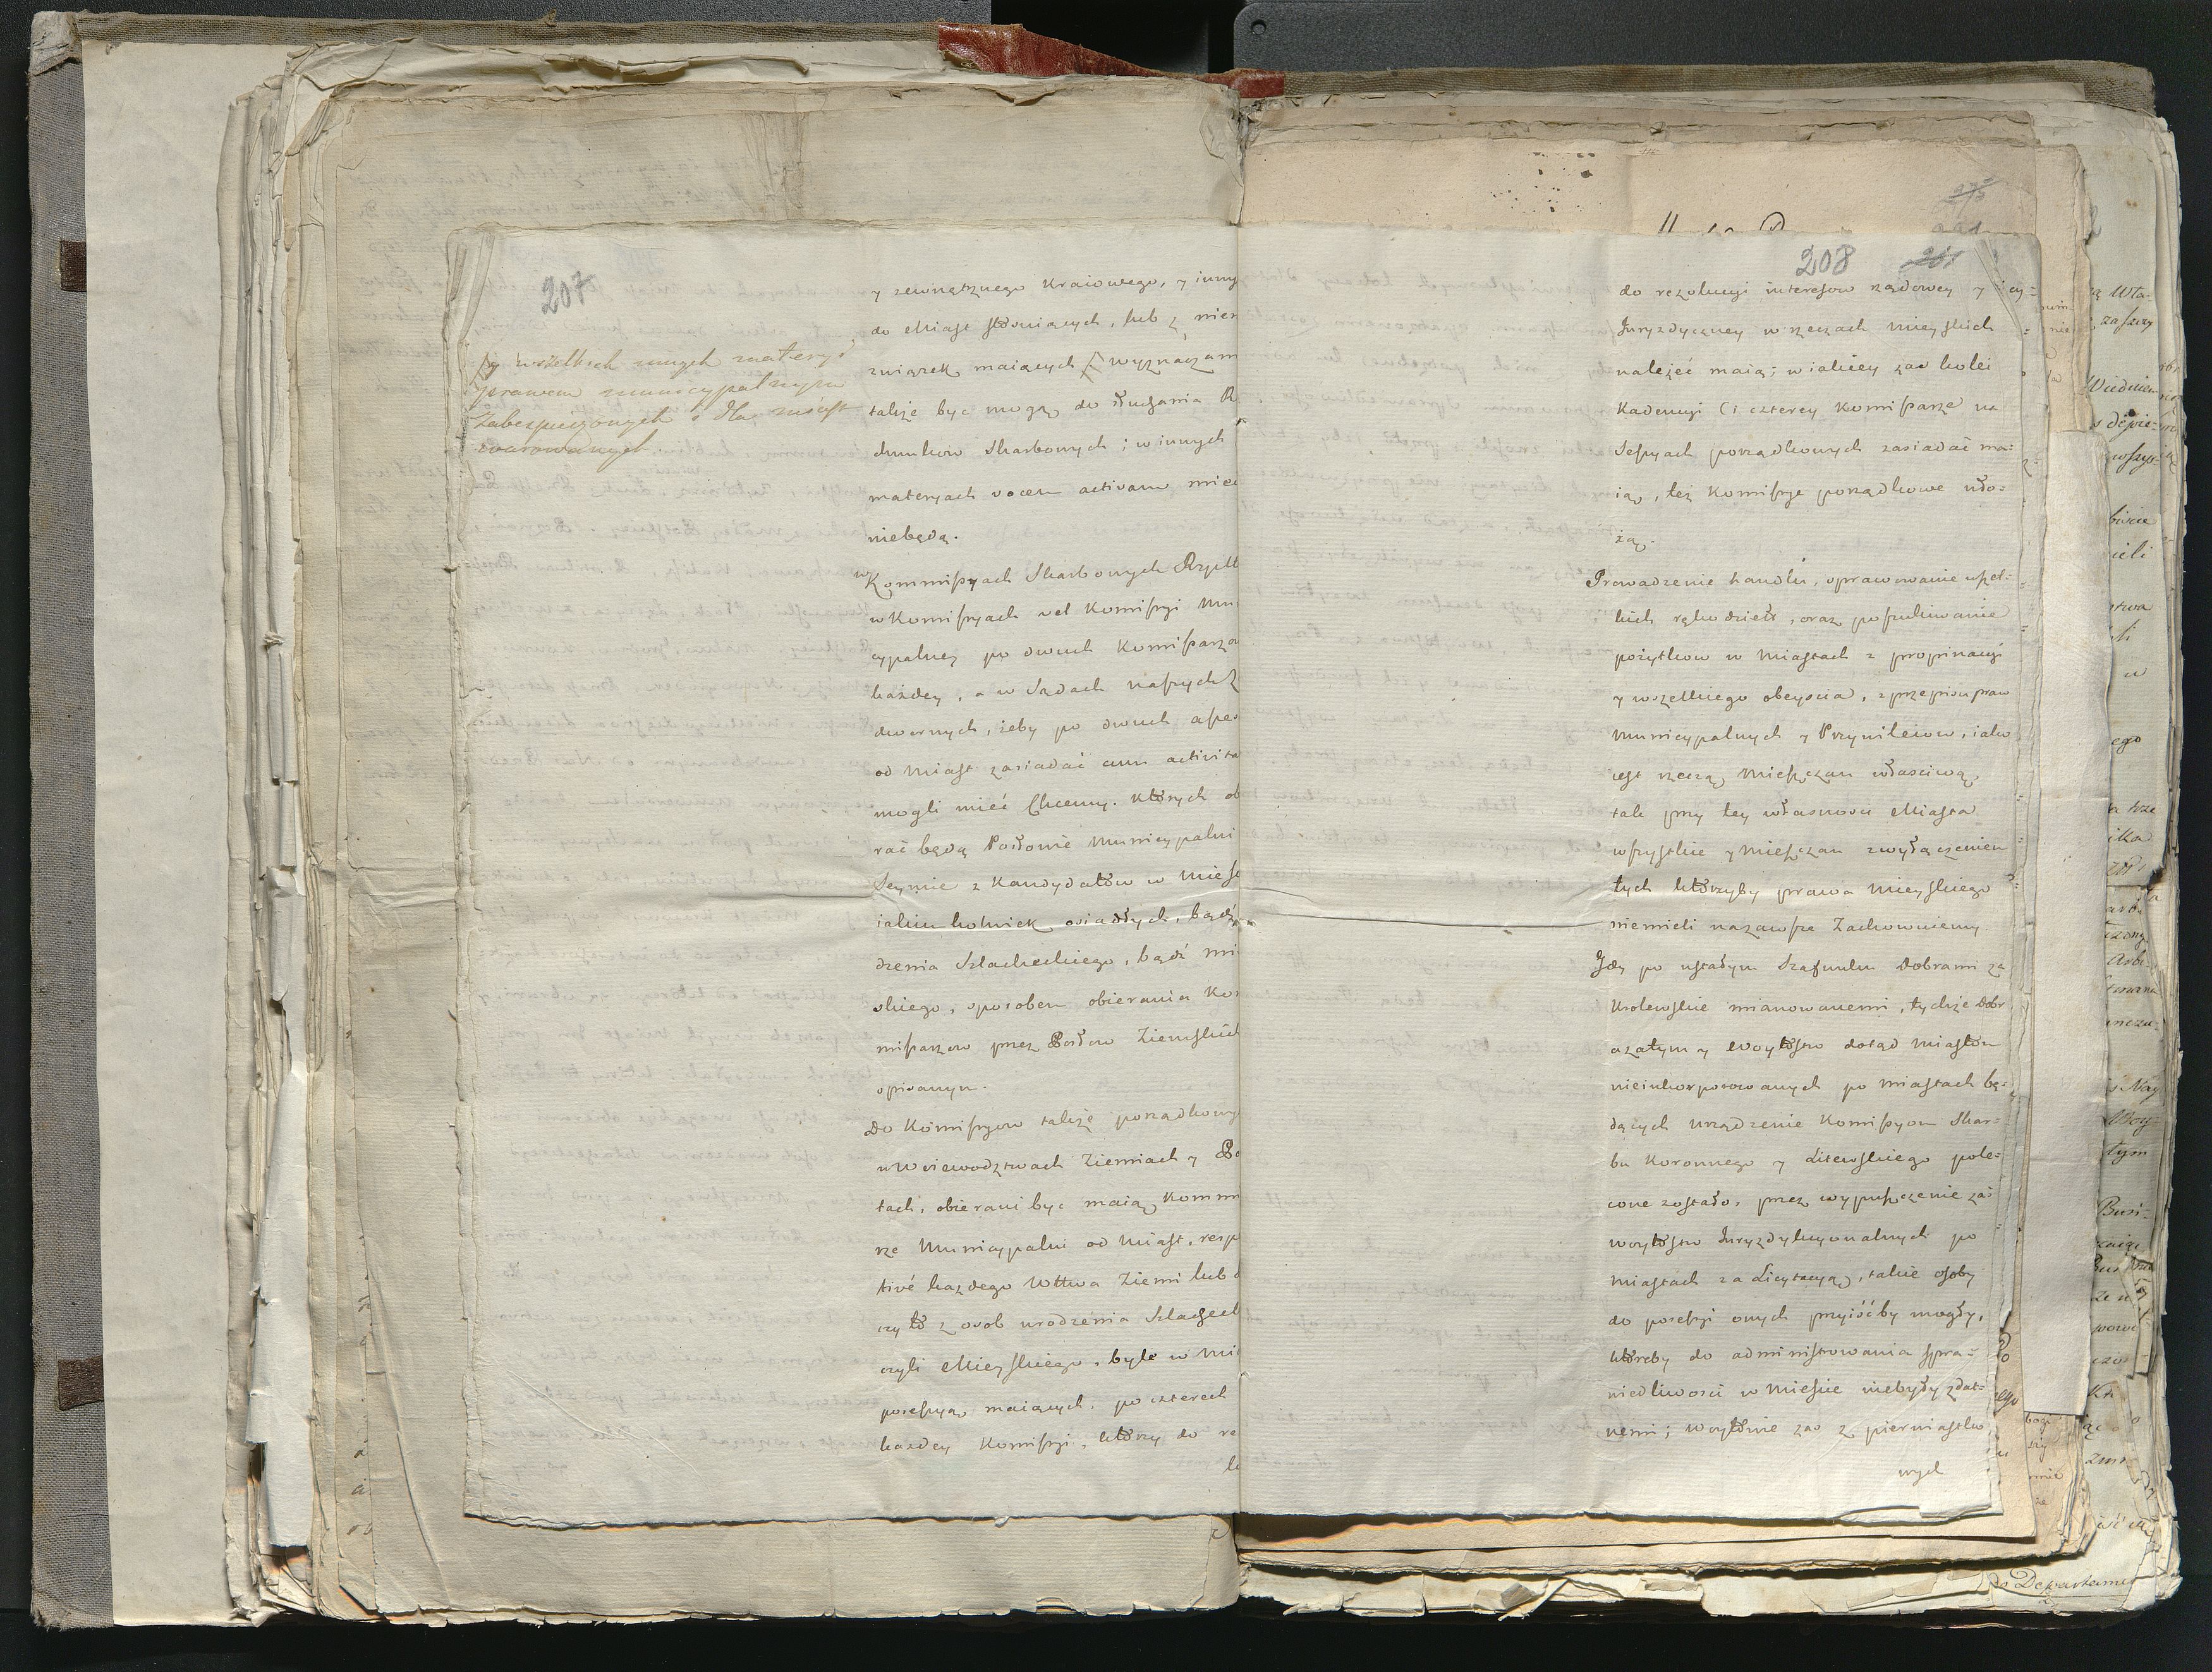 207
y zewnętznego Kraiowego, y inny
do Miast słóuiących, lub z nie
związek maiących wyznaczam
także być mogą do słuchania R
chunkow Skarbowych; w innych
materyach vocem activam mieć
niebędą.
y wszelkich innych materyi
prawem municypalnym
zabespieczonych i dla miast
warowanych.
w Kommissyach Skarbowych Rzpltt
w Komissyach vel Komissyi Mu
cypalney po dwuch Komissarzo
każdey, a w Sądach naszych Z
dwornych, żeby po dwuch asse
od Miast zasiadać cum activita
mogli mieć Chcemy. których ob
rać będą Posłowie Municypalni
Seymie z Kandydatów w Mieś
iakim kolwiek osiadłych, bądź
dzenia Szlacheckiego, bądź mi
skiego, sposobem obierania Ko
missarzow przez Posłow Ziemskich
opisanym.
Do Komissyow także porządkowy
w Woiewodztwach Ziemiach y Po
tach, obierani być maią Kommi
rze Municypalni od Miast, resp
tivé każdego Wttwa Ziemi lub
czy to z osob urodzenia Szlacheck
czyli Mieyskiego, byle w Mi
possessyą maiących, po czterech
każdey Komissyi, którzy do re
208
do rezolucyi interessow rządowey y
Juryzdyczney w rzeczach mieyskich
należeć maią; w iakiey zaś kolei
Kadencyi ci czterey Komissarze na
Sessyach porządkowych zasiadać ma=
ią, też Komissye porządkowe uło=
żą.
Prowadzenie handlu, sprawowanie wszel=
kich rękodzieł, oraz poszukiwanie
pożytkow w Miastach z propinacyi
y wszelkiego obeyscia, z przepisu praw
Municypalnych y Przywileiow, iako
iest rzeczą Mieszczan właściwą,
tak przy tey własnosci Miasta
wszystkie y Mieszczan z wyłączeniem
tych którzyby prawa Mieyskiego
niemieli nazawsze Zachowuiemy.
Gdy po ustałym Szafunku Dobrami za
Krolewskie mianowanemi, tychże Dobr
a zatym y Woytostw dotąd Miastom
nieinkorporowanych po miastach bę=
dących urządzenie Komissyom Skar=
bu Koronnego y Litewskiego pole=
cone zostało, przez wypuszczenie zaś
woytostw Juryzdykcyonalnych po
Miastach za Licytacyą, takie osoby
do possessyi onych przyiśćby mogły,
któreby do administrowania spra=
wiedliwosci w Miescie niebyły zdat=
nemi; woytowie zaś z pierwiastko
wych